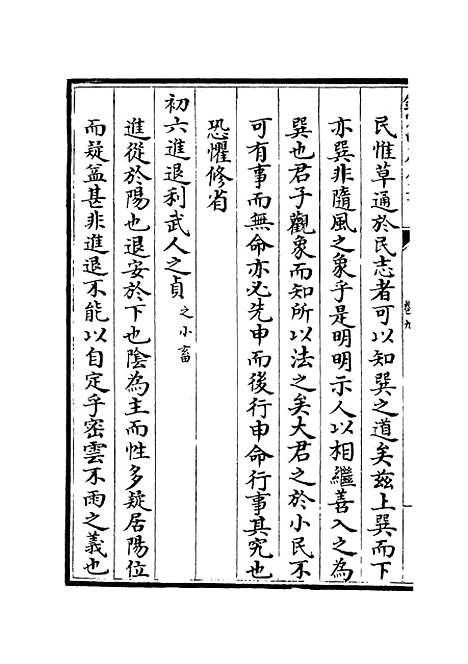 民惟草通於民志者可以知巽之道矣茲上巽而下
亦巽非隨風之象乎是明明示人以相繼善入之為
巽也君子觀象而知所以法之矣大君之於小民不
可有事而無命亦必先申而後行申命行事其究也
恐懼修省
初六進退利武人之貞之小畜
進從於陽也退安於下也陰為主而性多疑居陽位
而疑益甚非進退不能以自定乎密雲不雨之義也